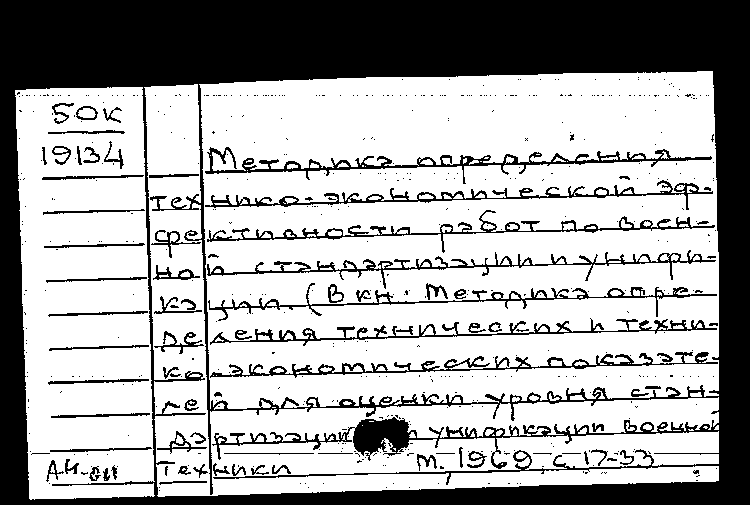 50К
19134
Методика определения
технико-экономической эф-
фективности работ по воен-
ной стандартизации и унифи-
кации. (В кн: Методика опре-
деления технических и техни-
ко-экономических показате-
лей для оценки уровня стан-
дартизации и унификации военной
техники М., 1969, с. 17-33